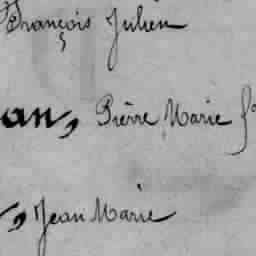 François Julien
an, Pierre Marie fs
, Jean Marie